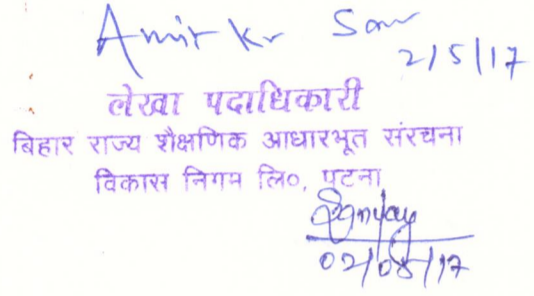 Amit Kr
2/5/17
लेखा पदाधिकारी
बिहार राज्य शैक्षणिक आधारभूत संरचना
विकास निगम लि०, पटना
02/05/17